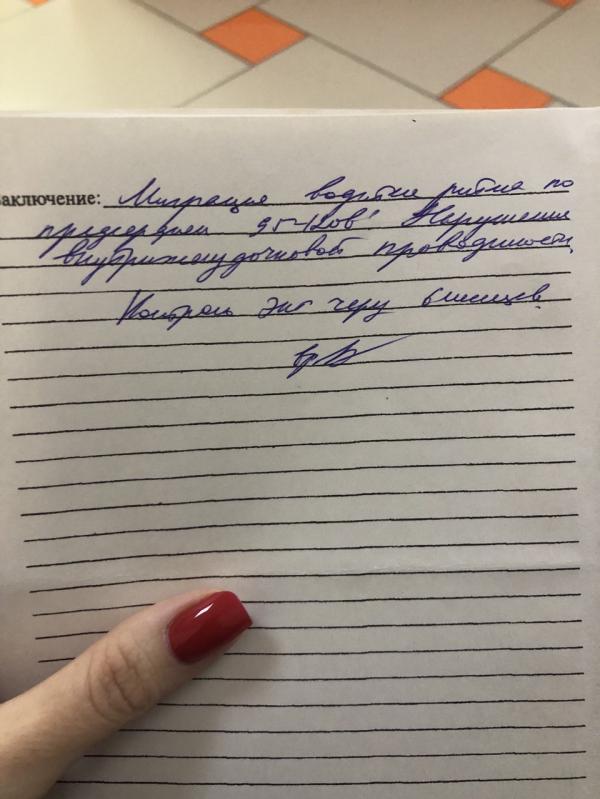 аключение: Миграция водителя ритма по
предсердиям 95-120в' Нарушение
внутрижелудочковой проводимости
Контроль ЭКГ через 6 месяцев